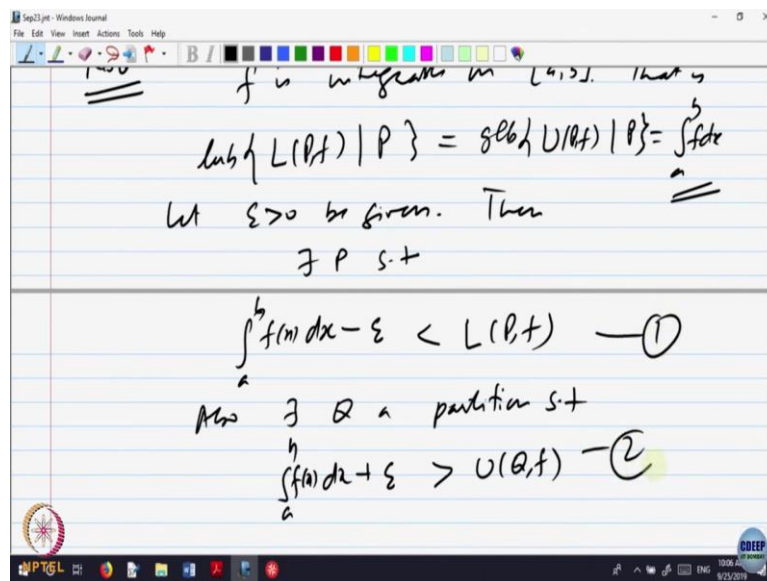 Sep23.jnt - Windows Journal
File Edit View Insert Actions Tools Help
f is integrable on [a,b]. That is
lub{ L(P,f) | P } = glb{ U(P,f) | P } = ∫_a^b f dx
Let ε>0 be given. Then
∃ P s.t
∫_a^b f(x) dx - ε < L(P,f) — ①
Also ∃ Q a partition s.t
∫_a^b f(x) dx + ε > U(Q,f) — ②
NPTEL
CDEEP
IIT BOMBAY
ENG
10:06 A
9/25/2019